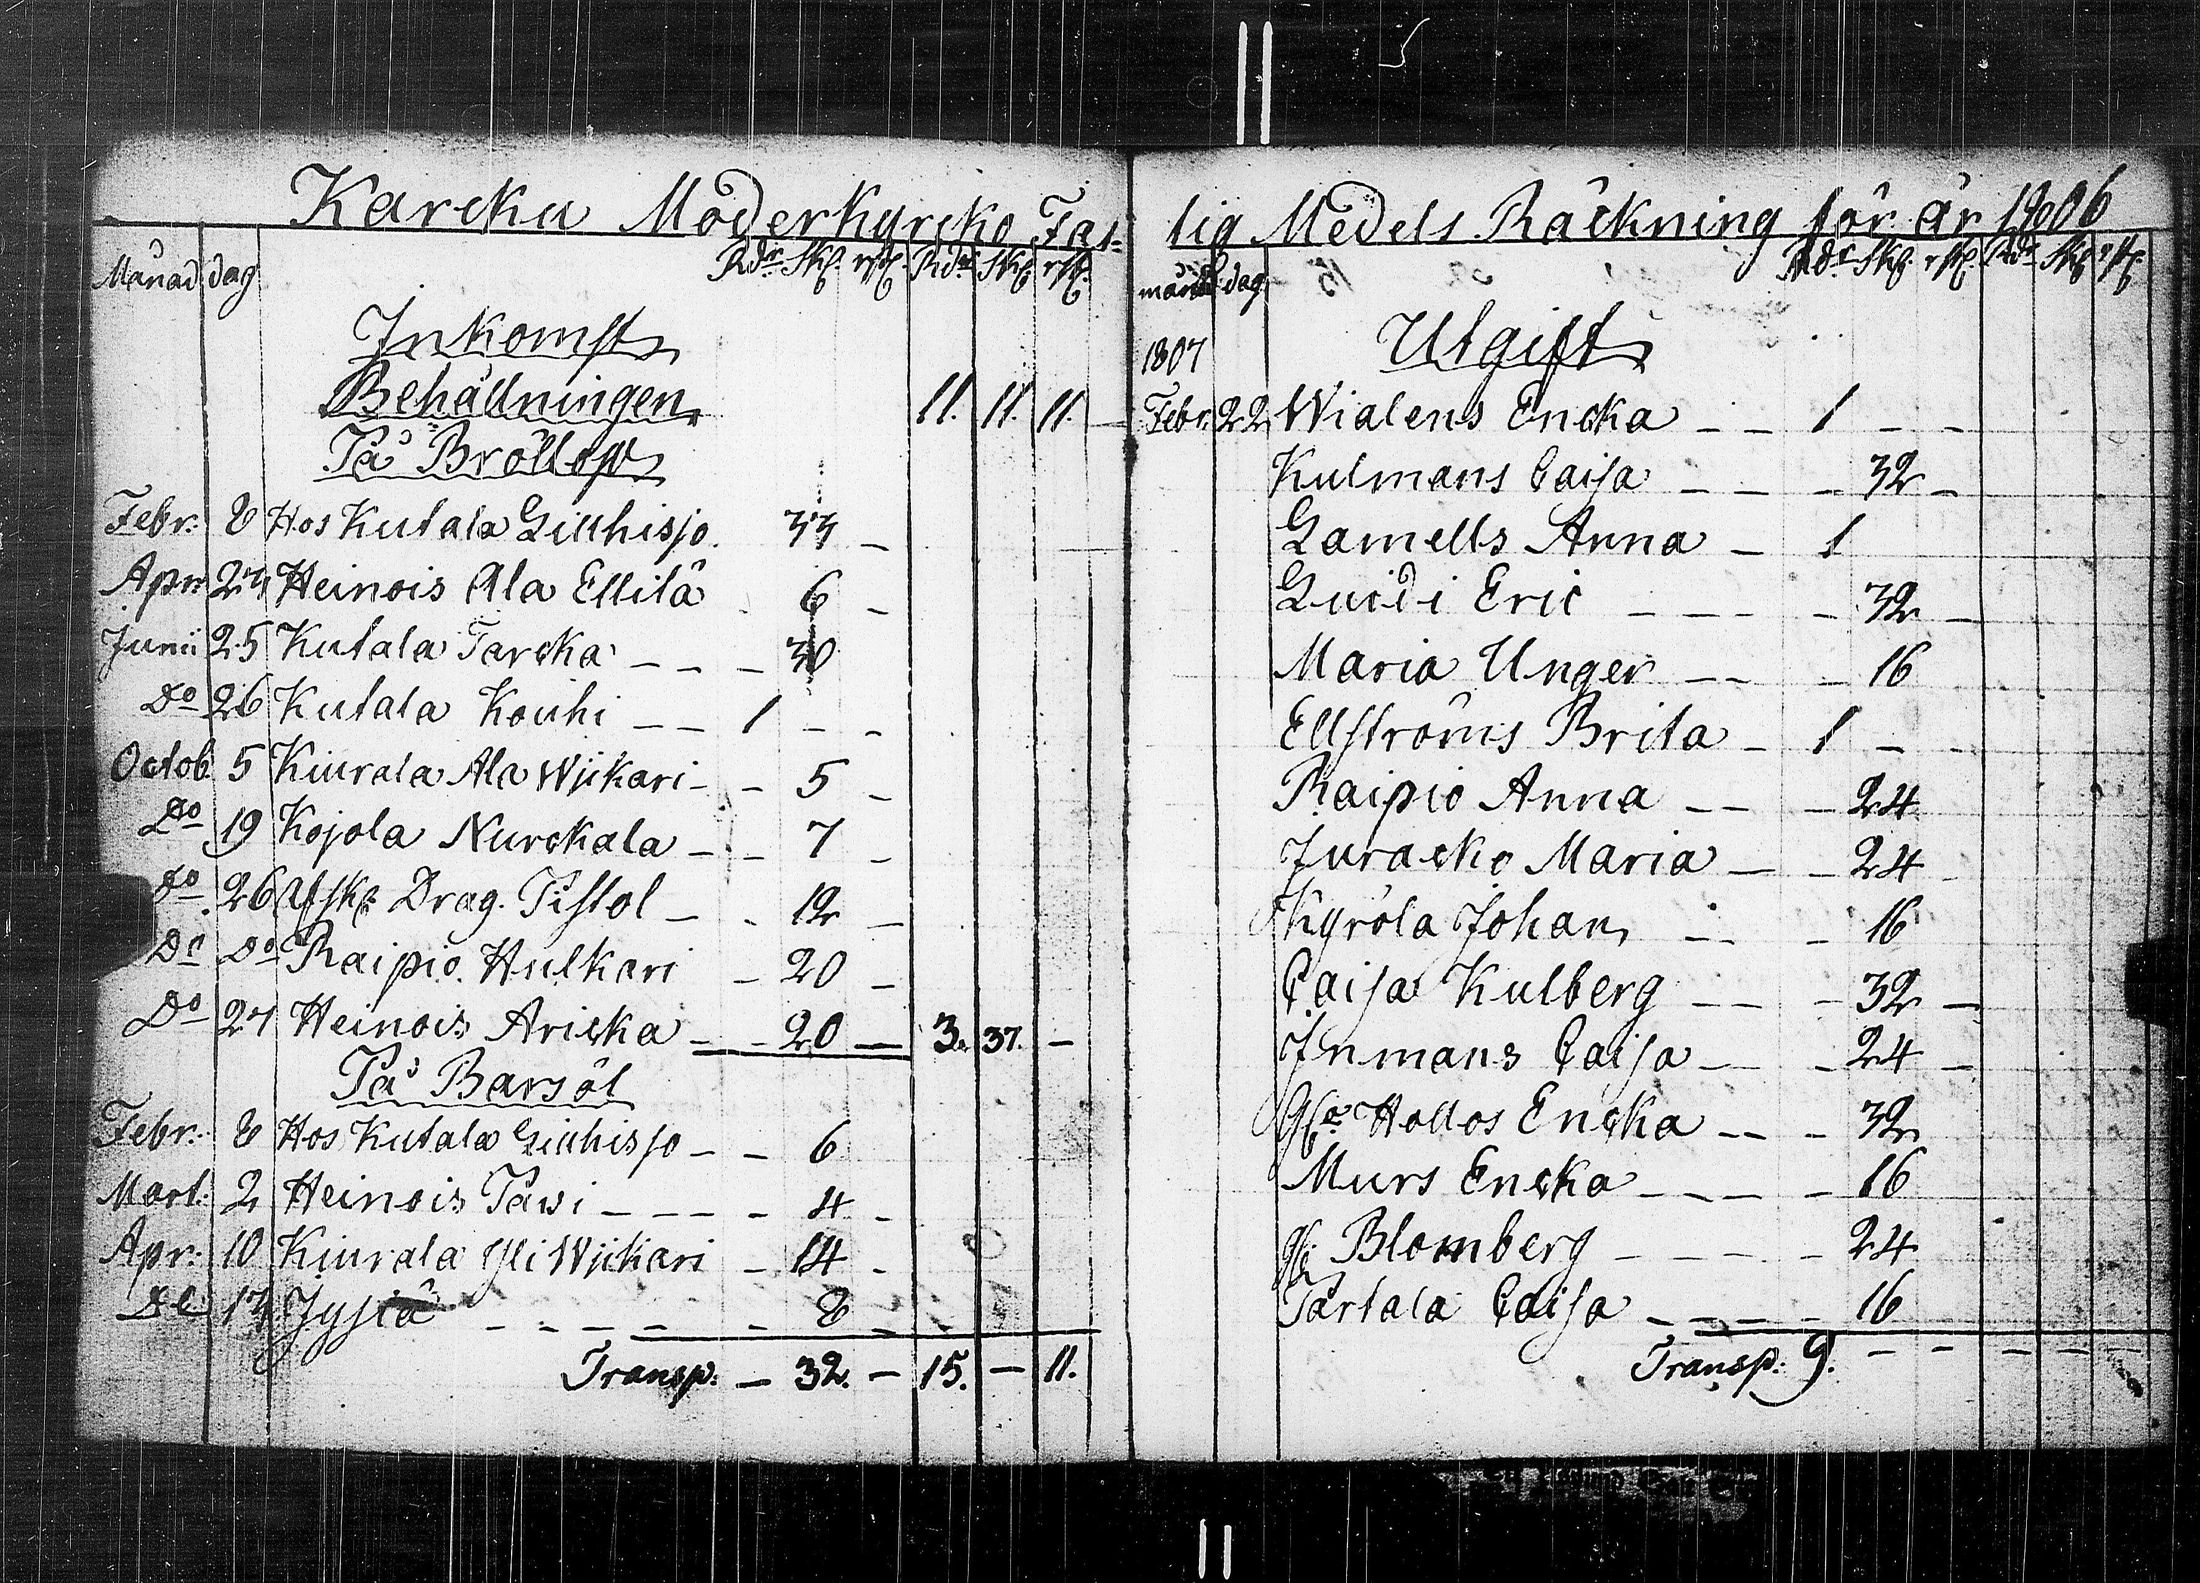 Karcku Moderkyrcko Fat=
Månad dag Rdr Sk: rst: Rdr Sk: rst:
Inkomst
Behållningen 11. 11. 11. —
På Bröllop
Febr: 8 Hos Kutala Gillhisjo. 33 —
Apr: 23 Heinois Ala Ellilä - 6 -
Junii 25 Kutala Tarcka — — — 30
Do 26 Kutala Kouhi — — 1 - -
Octob 5 Kiurala Ala Wjikari - - 5 -
Do 19 Kojola Nurckala — - 7 -
Do 26 Afsk: Drag. Pistol — - 12 —
Do Do Raipio Hulkari - 20 -
Do 27 Heinois Aricka — - 20 — 3. 37. —
På Barsöl
Febr: 8 Hos Kutala Gillhisjo - - 6
Mart: 2 Heinois Pawi — - - - 4 -
Apr: 10 Kiurala Yli Wjikari - 14 -
Do 13 Jyssä - - - - - 8 -
Transp: — 32. — 15. — 11.
tig Medels Räckning för år 1806
månad dag Rdr Sk: rst: Rdr Sk: rst:
1807 Utgift
Febr: 22 Wialens Encka — — 1 - -
Kulmans Caisa — — - 32 -
Gamells Anna — 1
Guidi Eric — — — - 32 -
Maria Unger — — - 16
Ellströms Brita — 1 - -
Raipio Anna — — - 24
Juracko Maria — - 24 -
Kyrölä Johan — - 16
Caisa Kulberg — — - 32 —
Inmans Caisa — - 24 -
Hollos Encka — — - 32
Murs Encka — — - 16
Blomberg — — — - 24
Partala Caisa — — - 16
Transp: 9. - - - - -